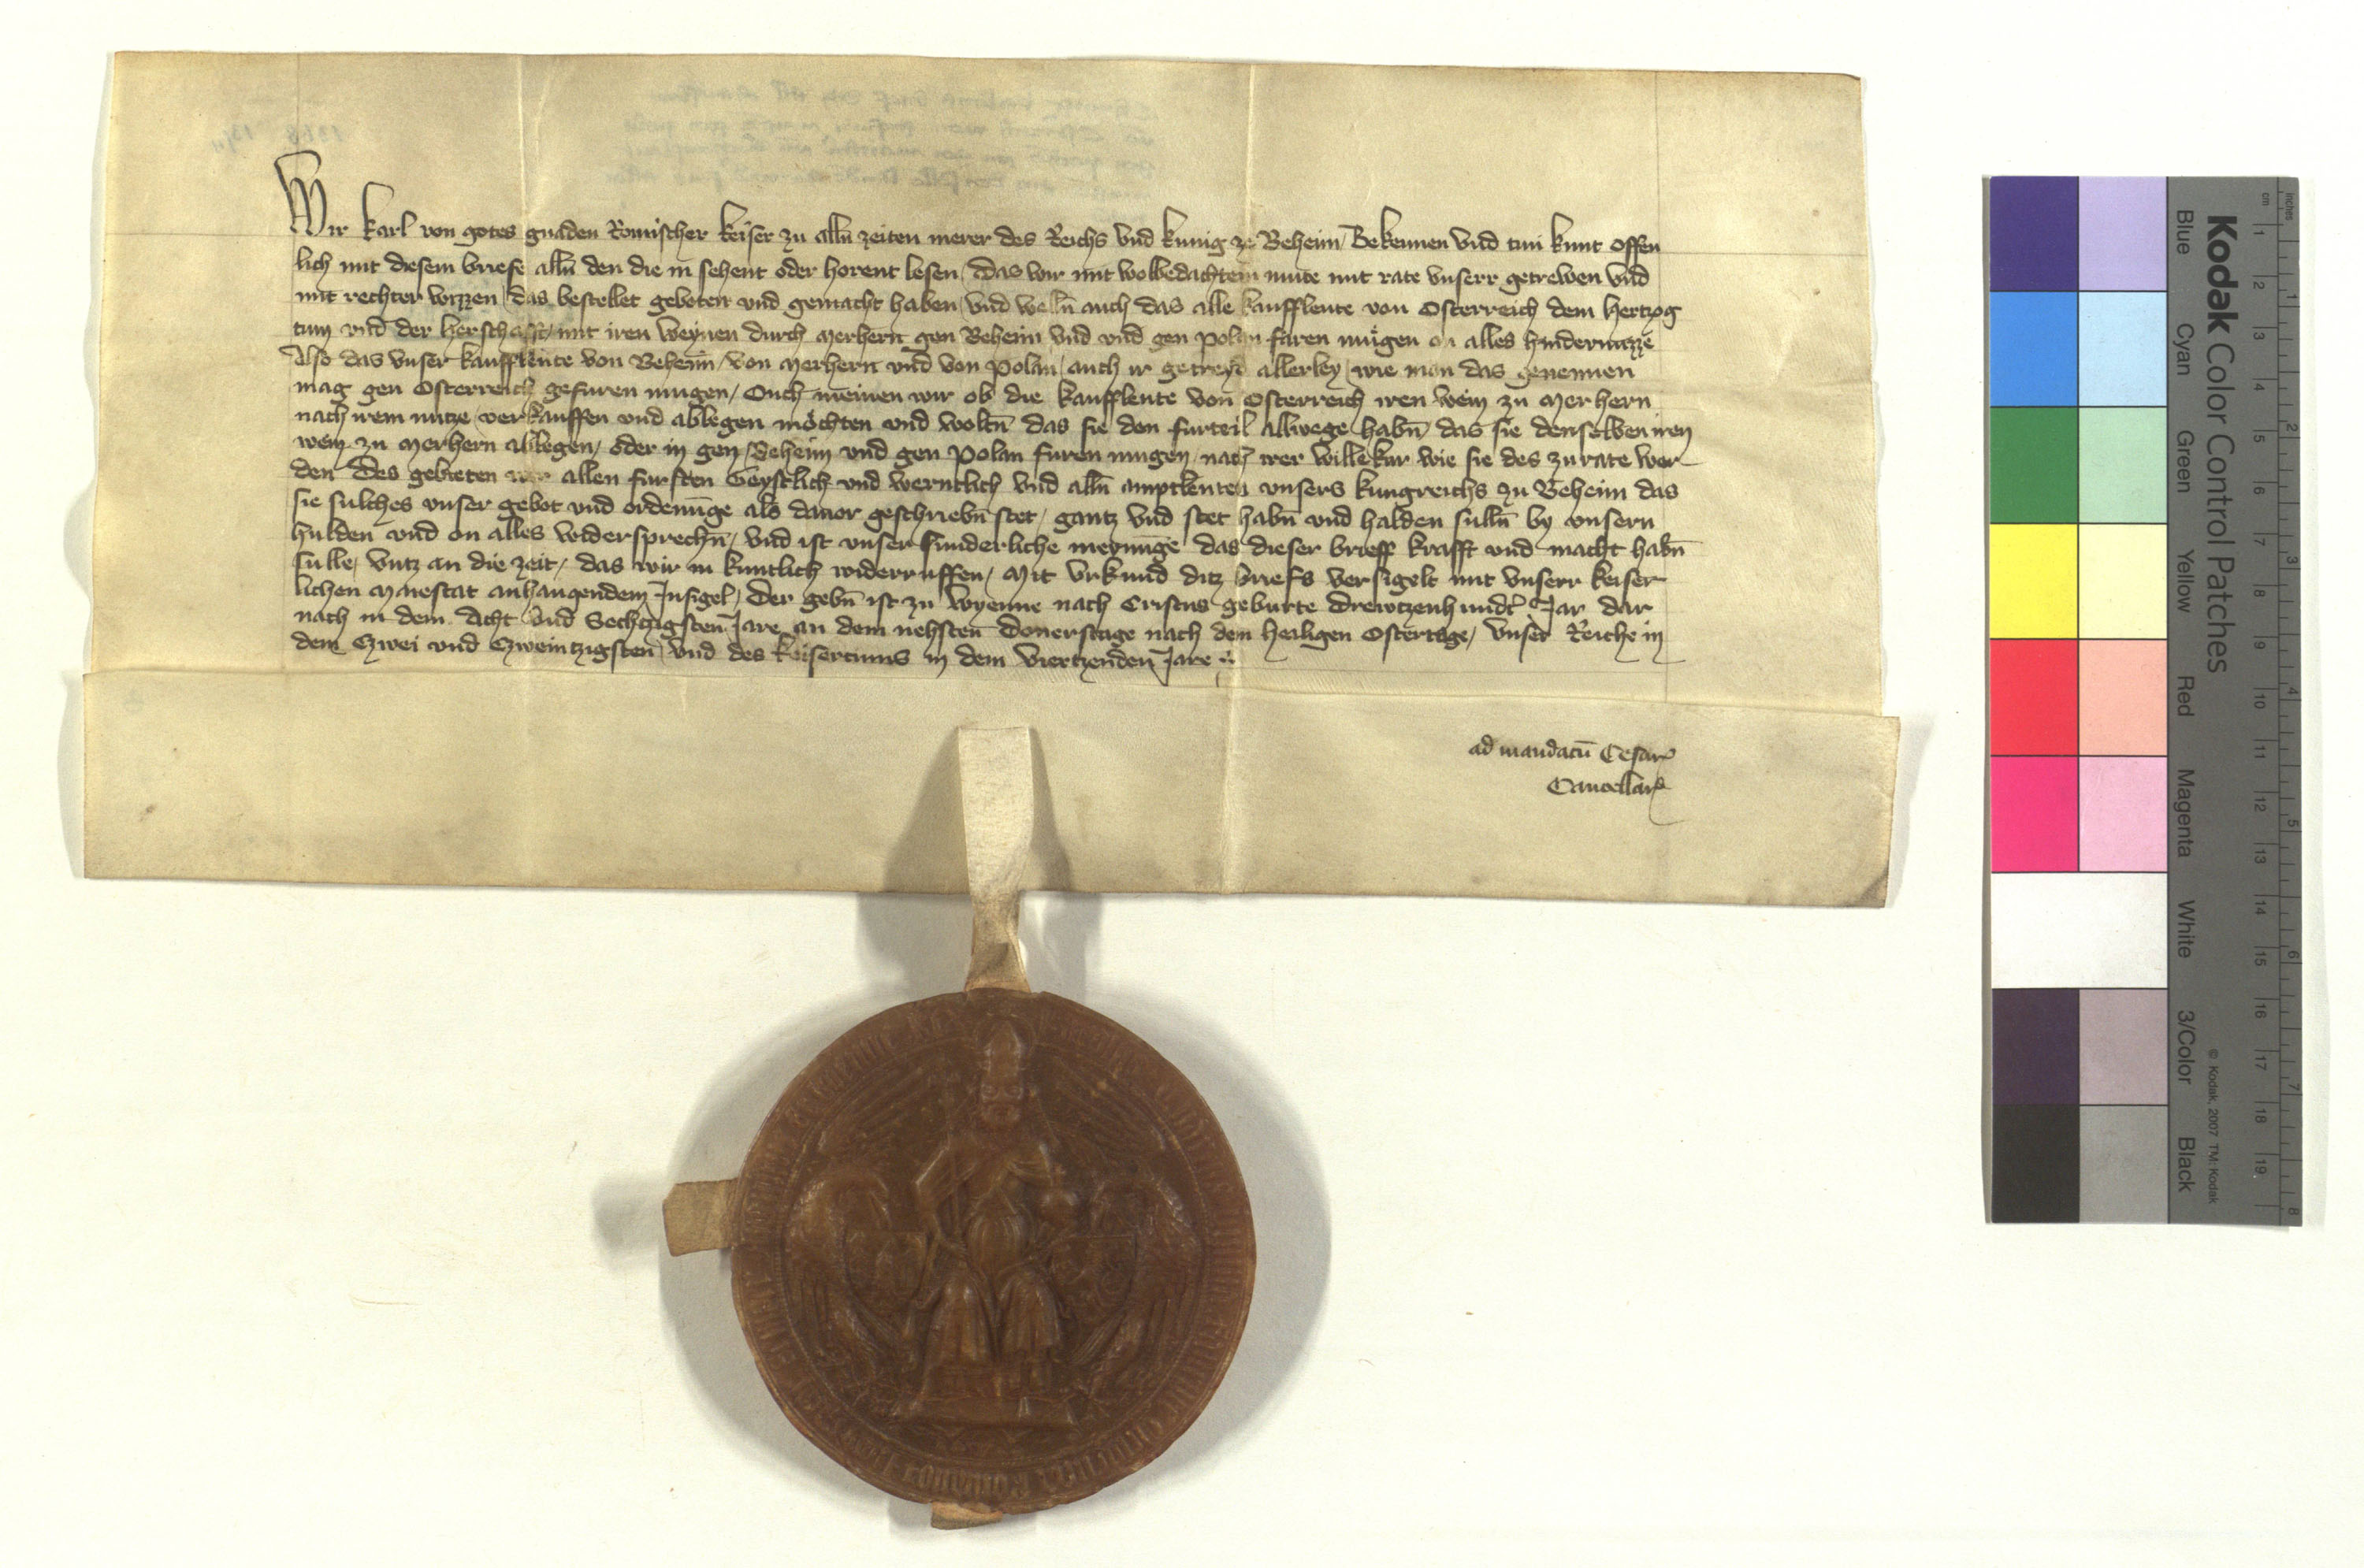 Wir Karl von gotes gnaden Romischer keiser zu alln̄ zeiten merer des Reichs vnd kunig ze Beheim Bekennen vnd tun kunt offen
lich mit diesem briefe alln̄ den die in sehent oder horent lesen / das wir mit wolbedachtem mute mit rate vnserr getrewen vnd
mit rechter wizzen / das bestellet geboten vnd gemacht haben / vnd welln̄ auch das alle kaufflente von Osterreich dem hertzog
tum vnd der herschafft / mit iren weynen durch merhern gen Beheim vnd vnd gen Polan faren mügen on alles hindernuzze
Also das vnser kaufflente von Beheim / von merhern vnd von Polan / auch ir getreyd allerley / wie man das genennen
mag gen Osterreich gefuren mugen / Ouch meinen wir ob die kaufflente von Osterreich iren wein zu merhern
nach irem nutze verkauffen vnd ablegen möchten vnd woltn̄ das sie den furteil allwege habn̄ das sie denselben iren
wein zu merhern ablegen / oder in gen Beheim vnd gen Polan furen mugen / nach irer willekur wie sie des zu rate wer
den Des gebieten wir allen fursten Geystlich vnd werntlich vnd alln̄ amptlenten vnsers kungreichs zu Beheim das
sie sulches vnser gebot vnd ordenūge als dauor geschriebn̄ stet / gantz vnd stet habn̄ vnd halden sulln̄ by vnsern
hulden vnd on alles widersprechn̄ / vnd ist vnser sunderliche meynūge das dieser brieff krafft vnd macht habn̄
sulle / vntz an die zeit / das wir in kuntlich widerruffen / Mit vrkund ditz briefs versigelt mit vnserr keiser
lichen Maiestat anhangendem Insigel / Der gebn̄ ist zu wyenne nach Cristus geburte drewtzenhundt̛ Jar dar
nach in dem Acht vnd Sechtzigsten Jare an dem nehsten Donerstage nach dem heiligen Ostertage / vnser Reiche in
dem Czwei vnd Czweintzigsten / vnd des keisertums in dem viertzenden Jare
ad mandatū Cesar̛
Cancellar̛
Kodak Color Control Patches
Blue Cyan Green Yellow Red Magenta White 3/Color Black
© Kodak, 2007 TM: Kodak
inches 1 2 3 4 5 6 7 8
cm 1 2 3 4 5 6 7 8 9 10 11 12 13 14 15 16 17 18 19